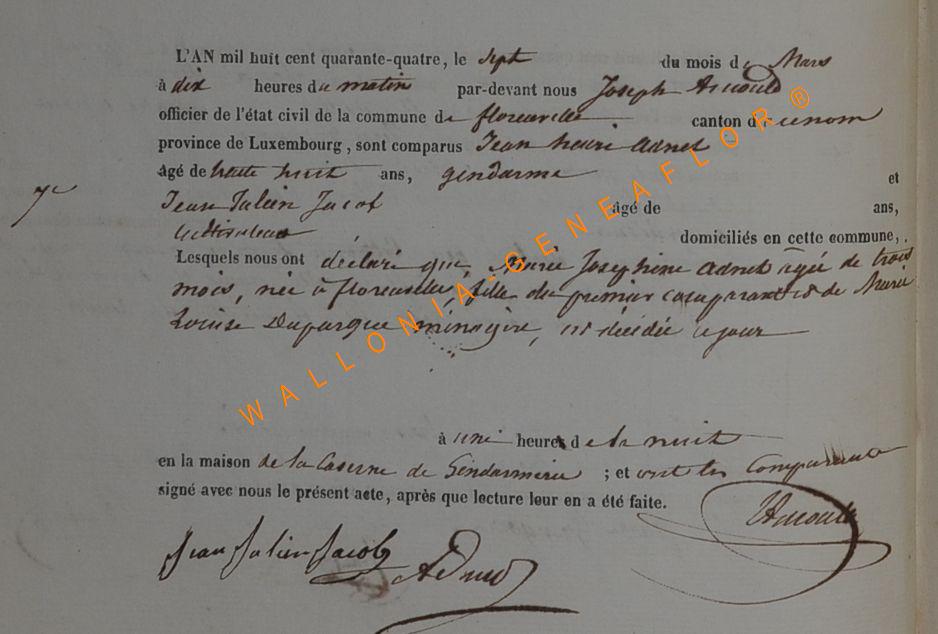 L'AN mil huit cent quarante-quatre, le sept du mois de Mars
à dix heures du matin par-devant nous Joseph Arnould
officier de l'état civil de la commune de florenville canton d'
province de Luxembourg, sont comparus Jean henri adnet
âgé de trente huit ans, gendarme et
7e
Jean Julien Jacob âgé de ans,
cultivateur domiciliés en cette commune,
Lesquels nous ont déclaré que, Marie Josephine adnet agée de trois
mois, née à florenville, fille du premier comparant et de Marie
Louise Duparque ménagère, est décédée ce jour
à une heures de la nuit
en la maison de la Caserne de Gendarmerie ; et ont les Comparants
signé avec nous le présent acte, après que lecture leur en a été faite.
Jean Julien Jacob Adnet
WALLONIA-GENEAFLOR®